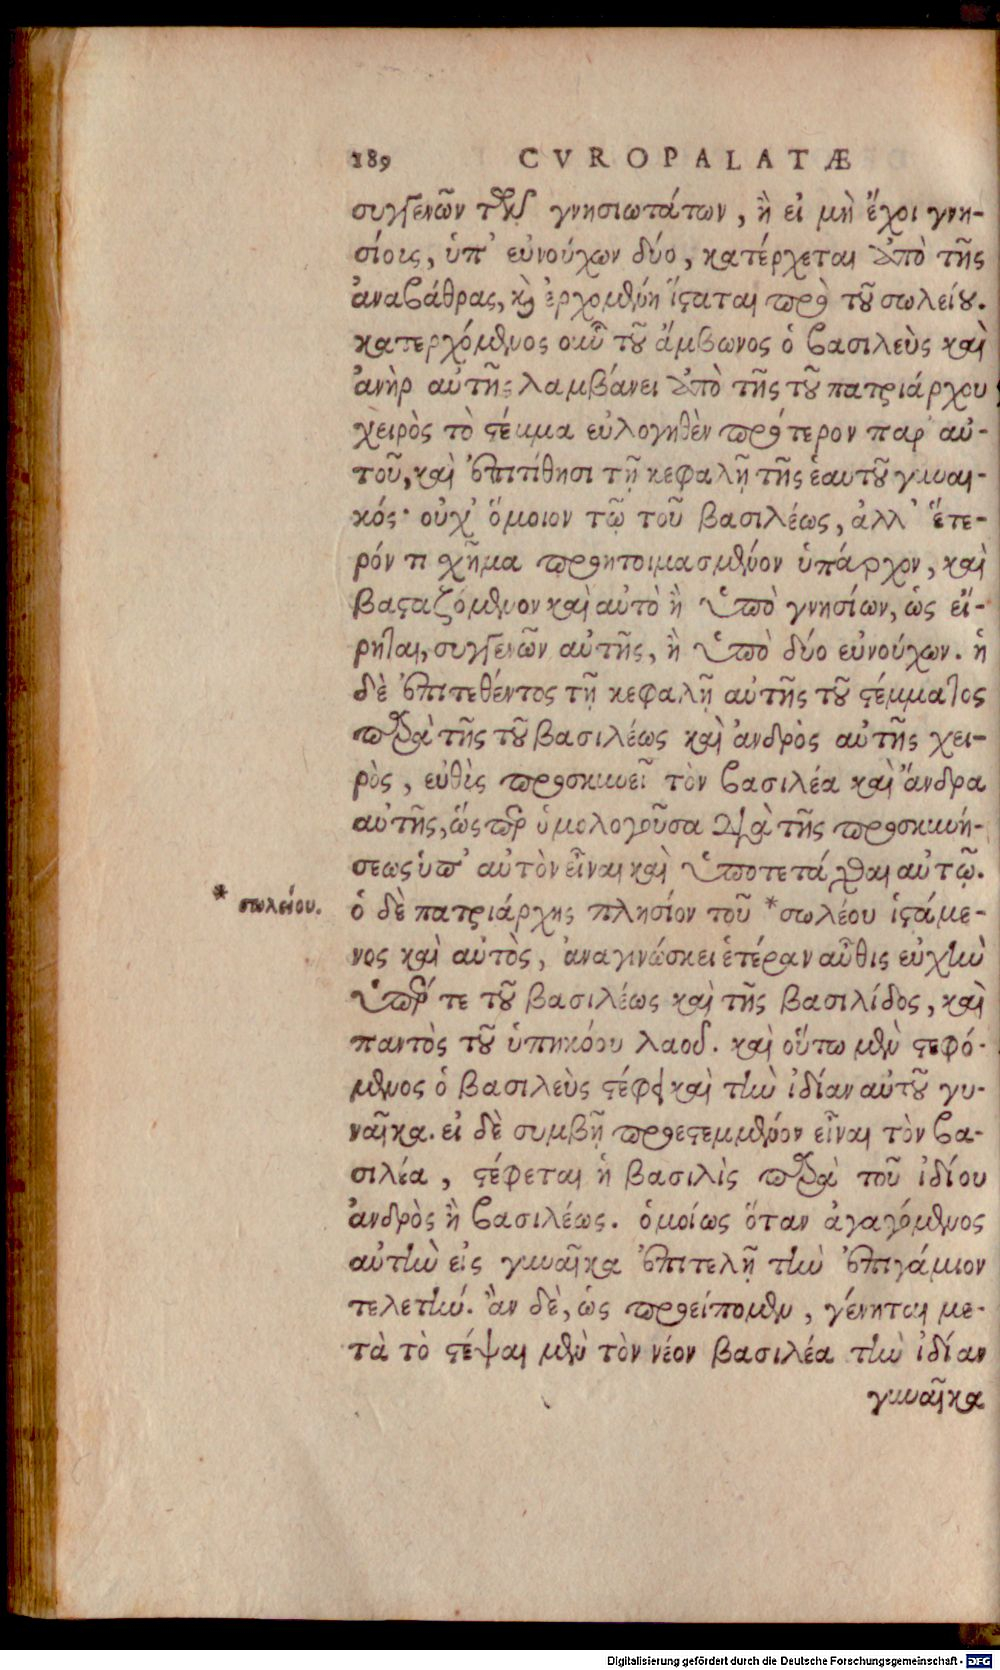 189 CVROPALATÆ
συγγενῶν τῶν γνησιωτάτων, ἢ εἰ μὴ ἔχοι γνη-
σίοις, ὑπ' εὐνούχων δύο, κατέρχεται ἀπὸ τῆς
ἀναβάθρας, καὶ ἐρχομένη ἵσταται πρὸ τοῦ σωλείου.
κατερχόμενος οὖν τοῦ ἄμβωνος ὁ βασιλεὺς καὶ
ἀνὴρ αὐτῆς λαμβάνει ἀπὸ τῆς τοῦ πατριάρχου
χειρὸς τὸ στέμμα εὐλογηθὲν πρότερον παρ' αὐ-
τοῦ, καὶ ἐπιτίθησι τῇ κεφαλῇ τῆς ἑαυτοῦ γυναι-
κός· οὐχ' ὅμοιον τῷ τοῦ βασιλέως, ἀλλ' ἕτε-
ρόν τι σχῆμα προητοιμασμένον ὑπάρχον, καὶ
βασταζόμενον καὶ αὐτὸ ἢ ὑπὸ γνησίων, ὡς εἴ-
ρηται, συγγενῶν αὐτῆς, ἢ ὑπὸ δύο εὐνούχων. ἡ
δὲ ἐπιτεθέντος τῇ κεφαλῇ αὐτῆς τοῦ στέμματος
παρὰ τῆς τοῦ βασιλέως καὶ ἀνδρὸς αὐτῆς χει-
ρὸς, εὐθὶς προσκυνεῖ τὸν βασιλέα καὶ ἄνδρα
αὐτῆς, ὥσπερ ὁμολογοῦσα διὰ τῆς προσκυνή-
σεως ὑπ' αὐτὸν εἶναι καὶ ὑποτετάχθαι αὐτῷ.
* σωλείου.
ὁ δὲ πατριάρχης πλησίον τοῦ *σωλέου ἱστάμε-
νος καὶ αὐτὸς, ἀναγινώσκει ἑτέραν αὖθις εὐχὴν
ὑπέρ τε τοῦ βασιλέως καὶ τῆς βασιλίδος, καὶ
παντὸς τοῦ ὑπηκόου λαοῦ. καὶ οὕτω μὲν στεφό-
μενος ὁ βασιλεὺς στέφει καὶ τὴν ἰδίαν αὐτοῦ γυ-
ναῖκα. εἰ δὲ συμβῇ προεστεμμένον εἶναι τὸν βα-
σιλέα, στέφεται ἡ βασιλὶς παρὰ τοῦ ἰδίου
ἀνδρὸς ἢ βασιλέως. ὁμοίως ὅταν ἀγαγόμενος
αὐτὴν εἰς γυναῖκα ἐπιτελῇ τὴν ἐπιγάμιον
τελετήν. ἂν δὲ, ὡς προείπομεν, γένηται με-
τὰ τὸ στέψαι μὲν τὸν νέον βασιλέα τὴν ἰδίαν
γυναῖκα
Digitalisierung gefördert durch die Deutsche Forschungsgemeinschaft - DFG